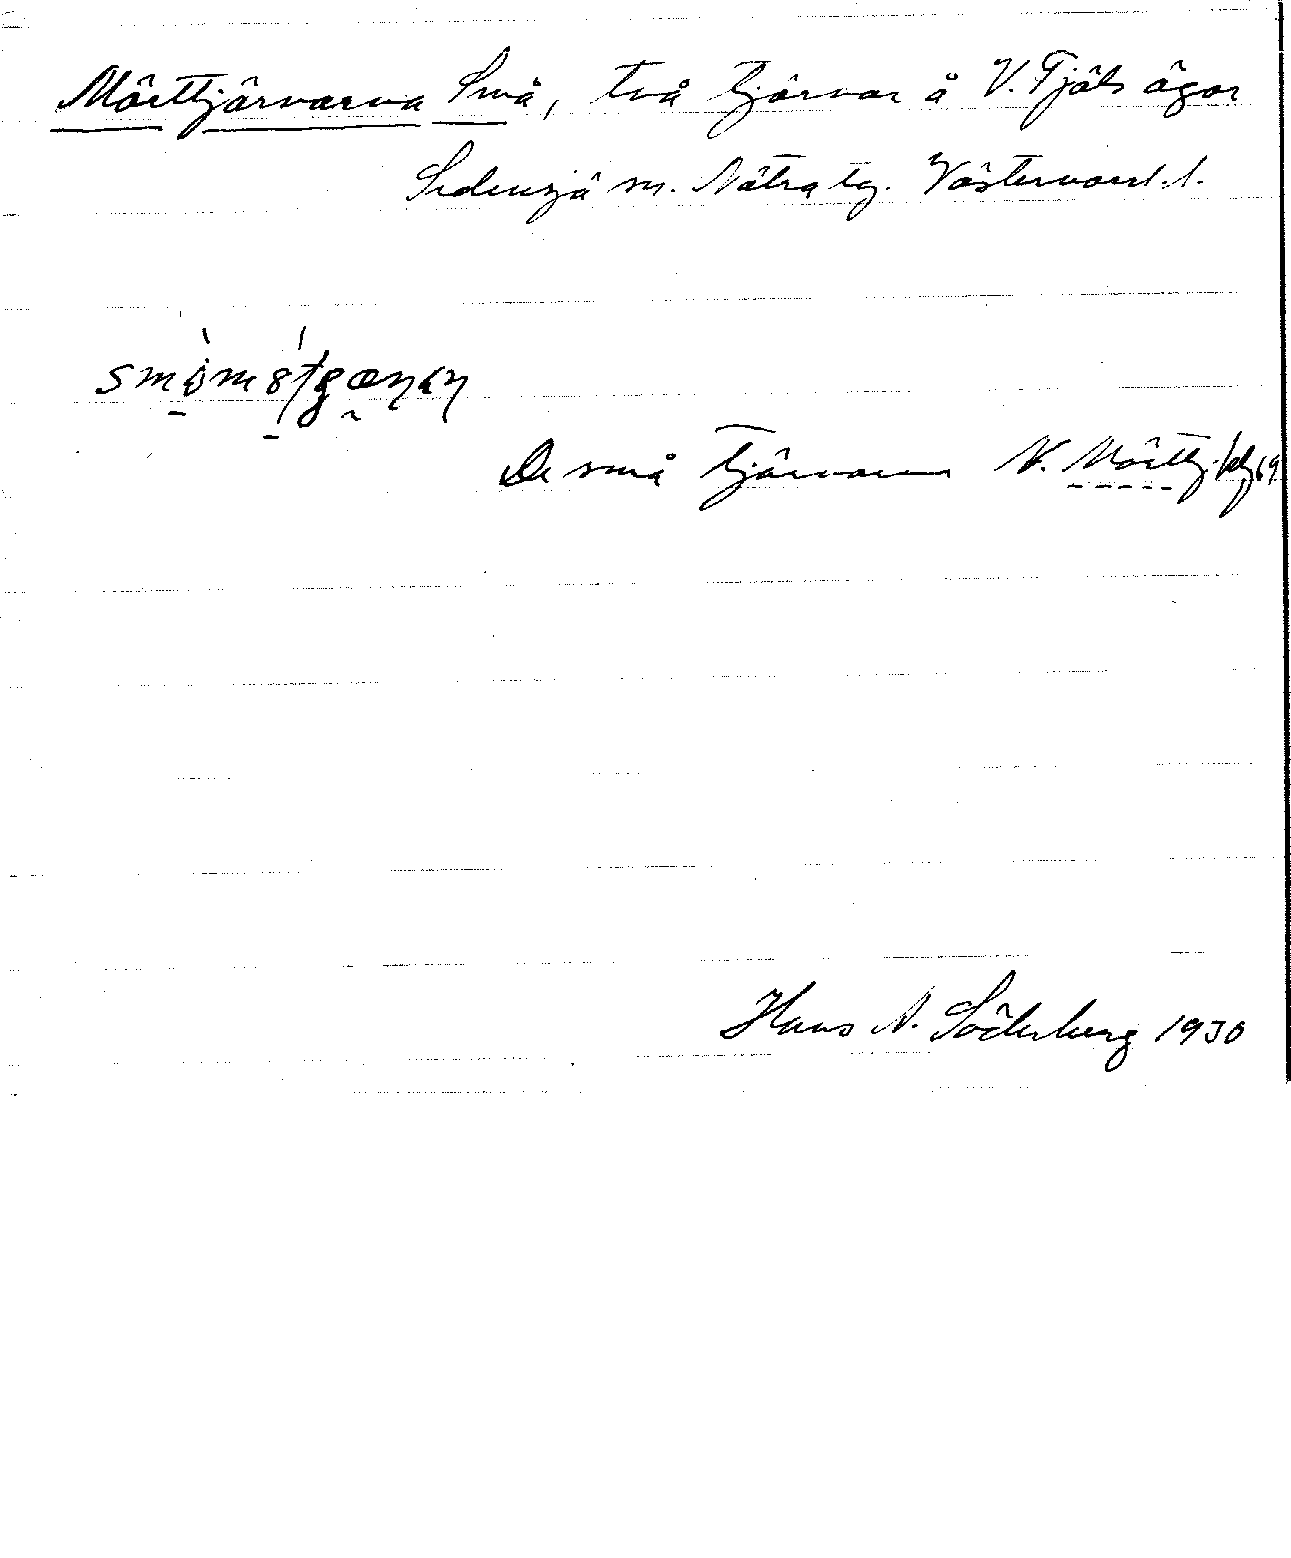 Mörttjärnarna Små, två tjärnar å V. Fjäls ägor
Sidensjö sn. Nätra tg. Västernorrl. l.
De små tjärnarna N. Mörttj.
Hans N. Söderberg 1930